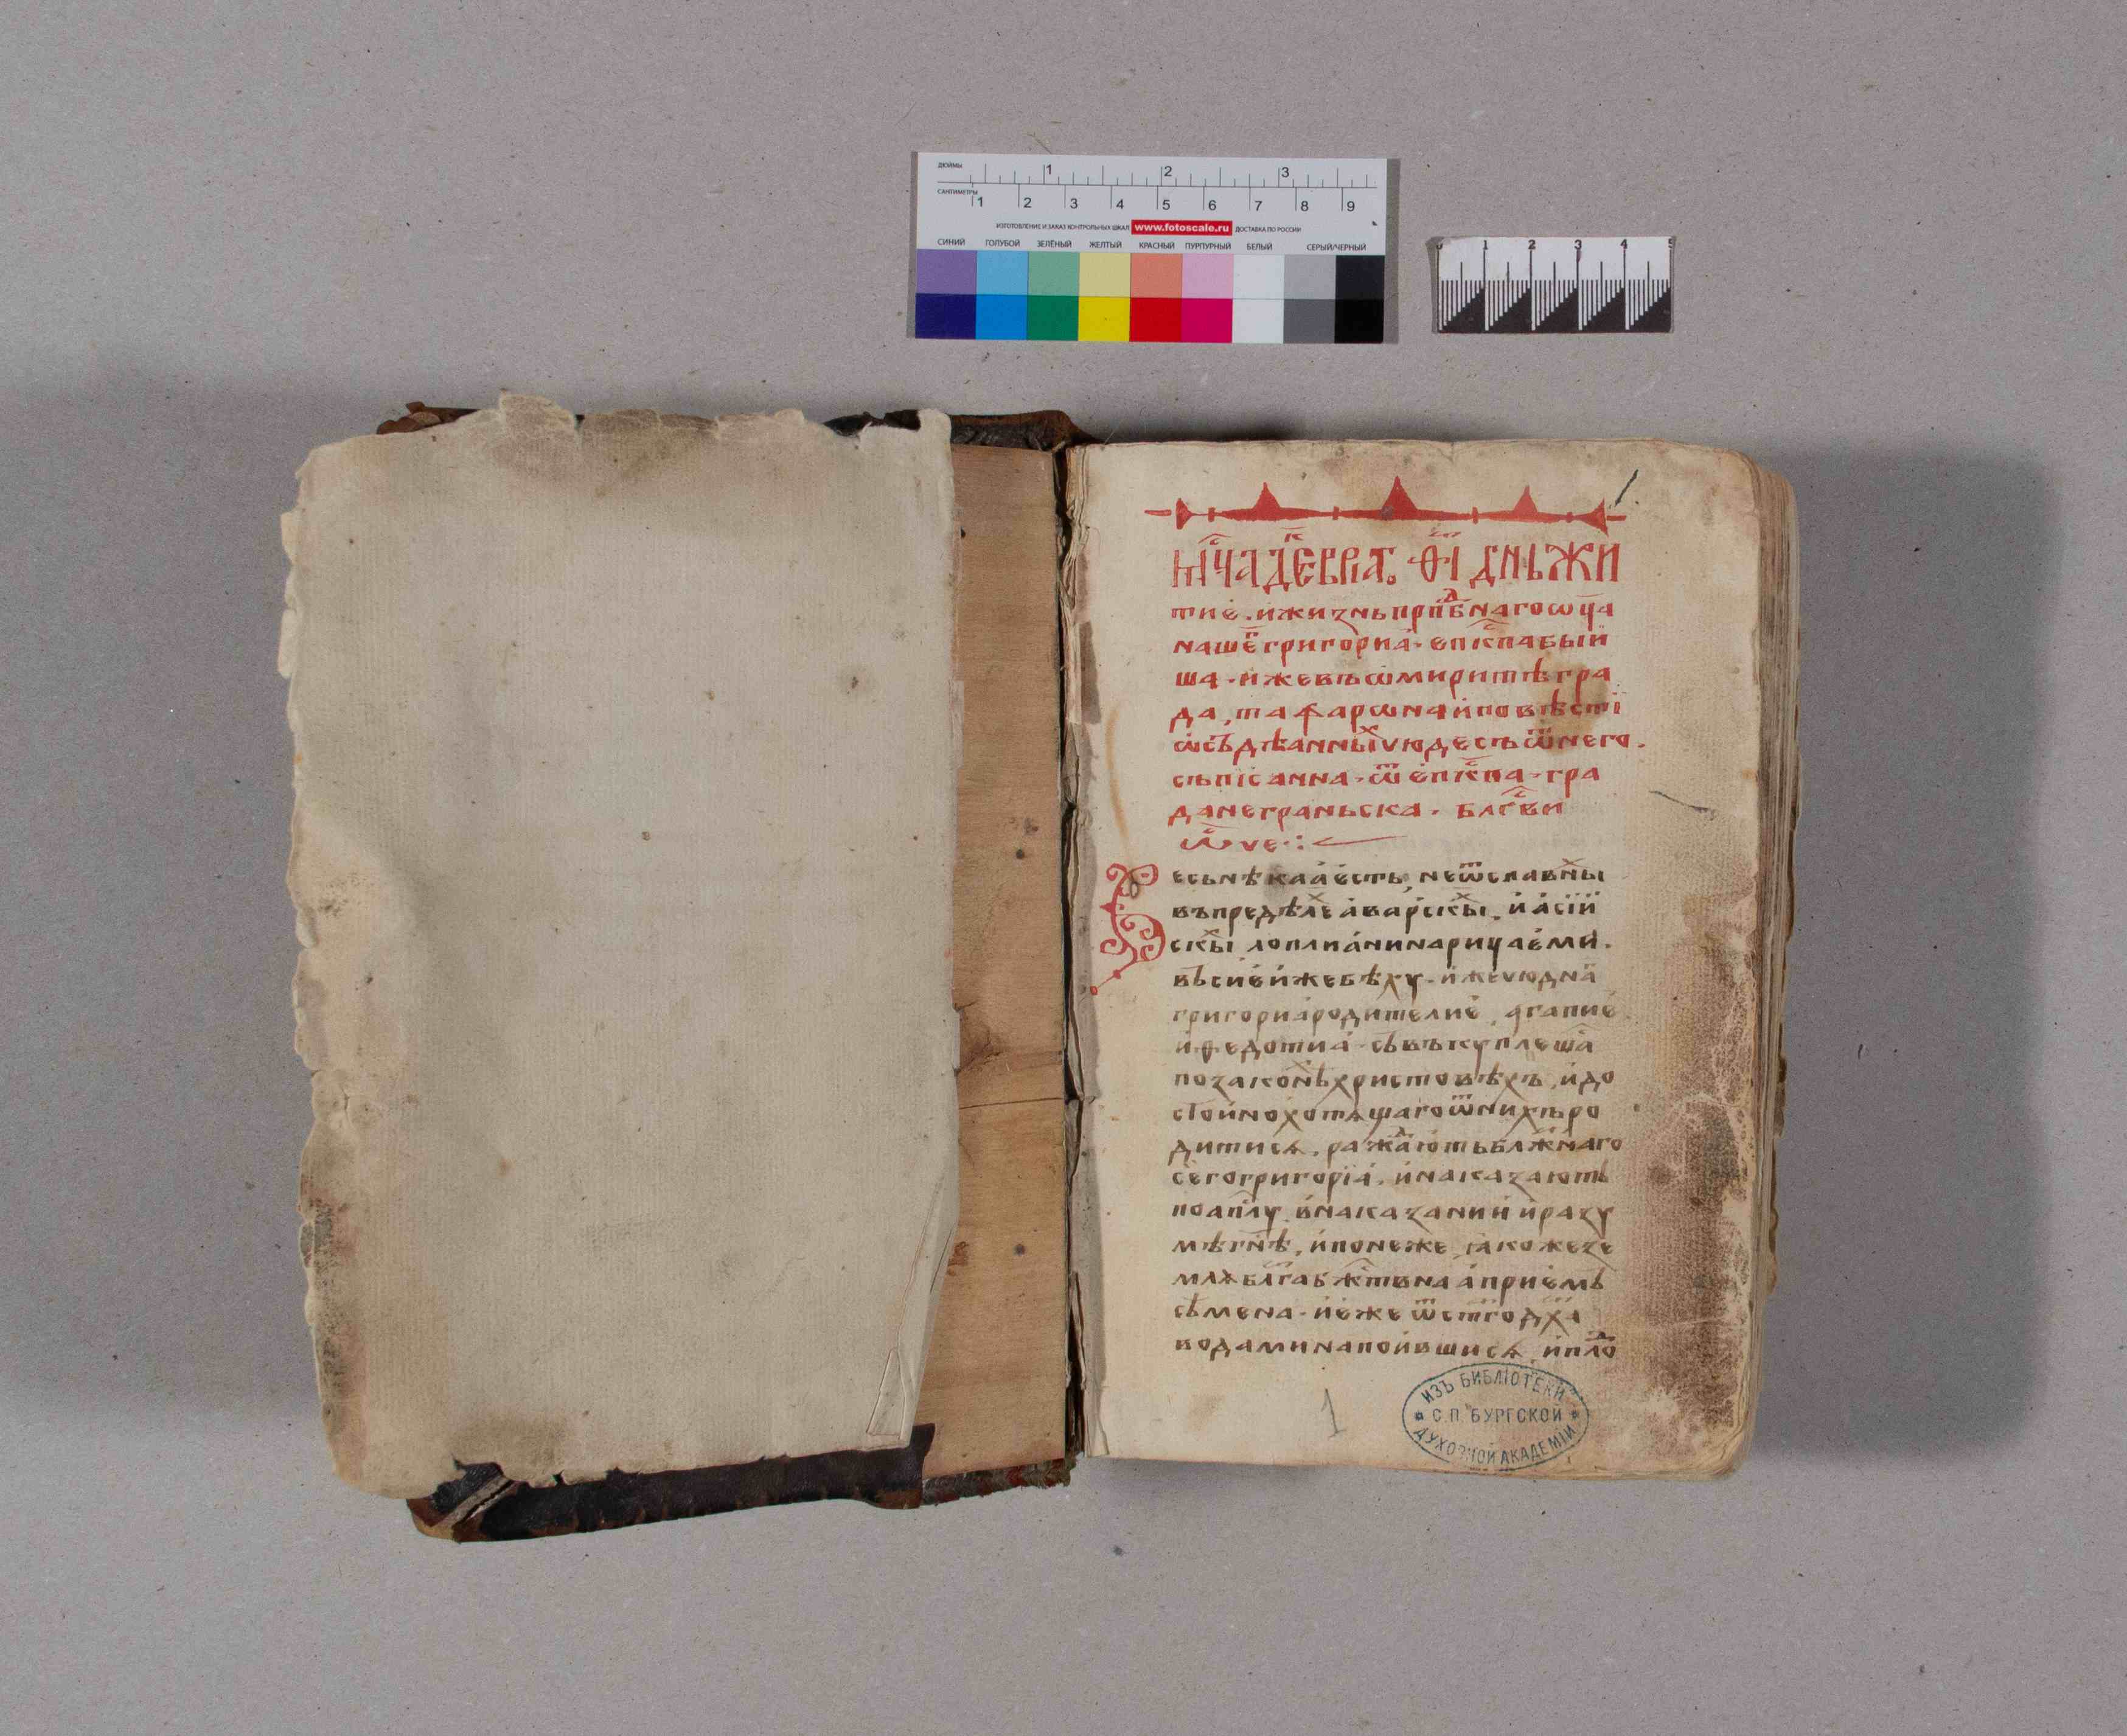 дюймы 1 2 3
сантиметры 1 2 3 4 5 6 7 8 9
изготовление и заказ контрольных шкал www.fotoscale.ru доставка по россии
синий голубой зелёный желтый красный пурпурный белый серый/черный
0 1 2 3 4 5
1.
мс҃ца декевріа. ѳ҃і дньжи
тие. и жизнь прпд҃бнаго ѡц҃а
нашег григориа. епкс҃па бый
ша. иже въ ѡмиритѣ гра
да, та фарѡна и повѣсті
ѡ съдѣанных чюдесъ ѿ него.
съпісанна. ѿ епкс҃па. гра
да неграньска. блгс҃ви
ѿче:
есь нѣкаа есть, не ѿславны
въ пределех аварскых. и асій
скых лоплиани нарицаеми.
въ сией же бѣху. иже чюднаг
григориа родителие, агапие
и федотиа. съвъкуплешас
по законѣх христовѣхъ, и до
стойно хотящаго ѿ них про
дитися. раждають блж҃наго
сего григоріа. и наказають
по апс҃лу в наказании и разу
мѣ гн҃ѣ. и понеже, якоже зе
мля блг҃а бжс҃твнаа приемь
сѣмена. и еже ѿ ст҃го дх҃а
водами напоившися, и пло
1
ИЗЪ БИБЛІОТЕКИ
С.П.БУРГСКОЙ
ДУХОВНОЙ АКАДЕМІИ